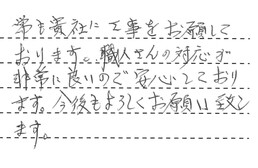 常に貴社に工事をお願して
おります。職人さんの対応が
非常に良いので安心しており
ます。今後もよろしくお願い致し
ます。